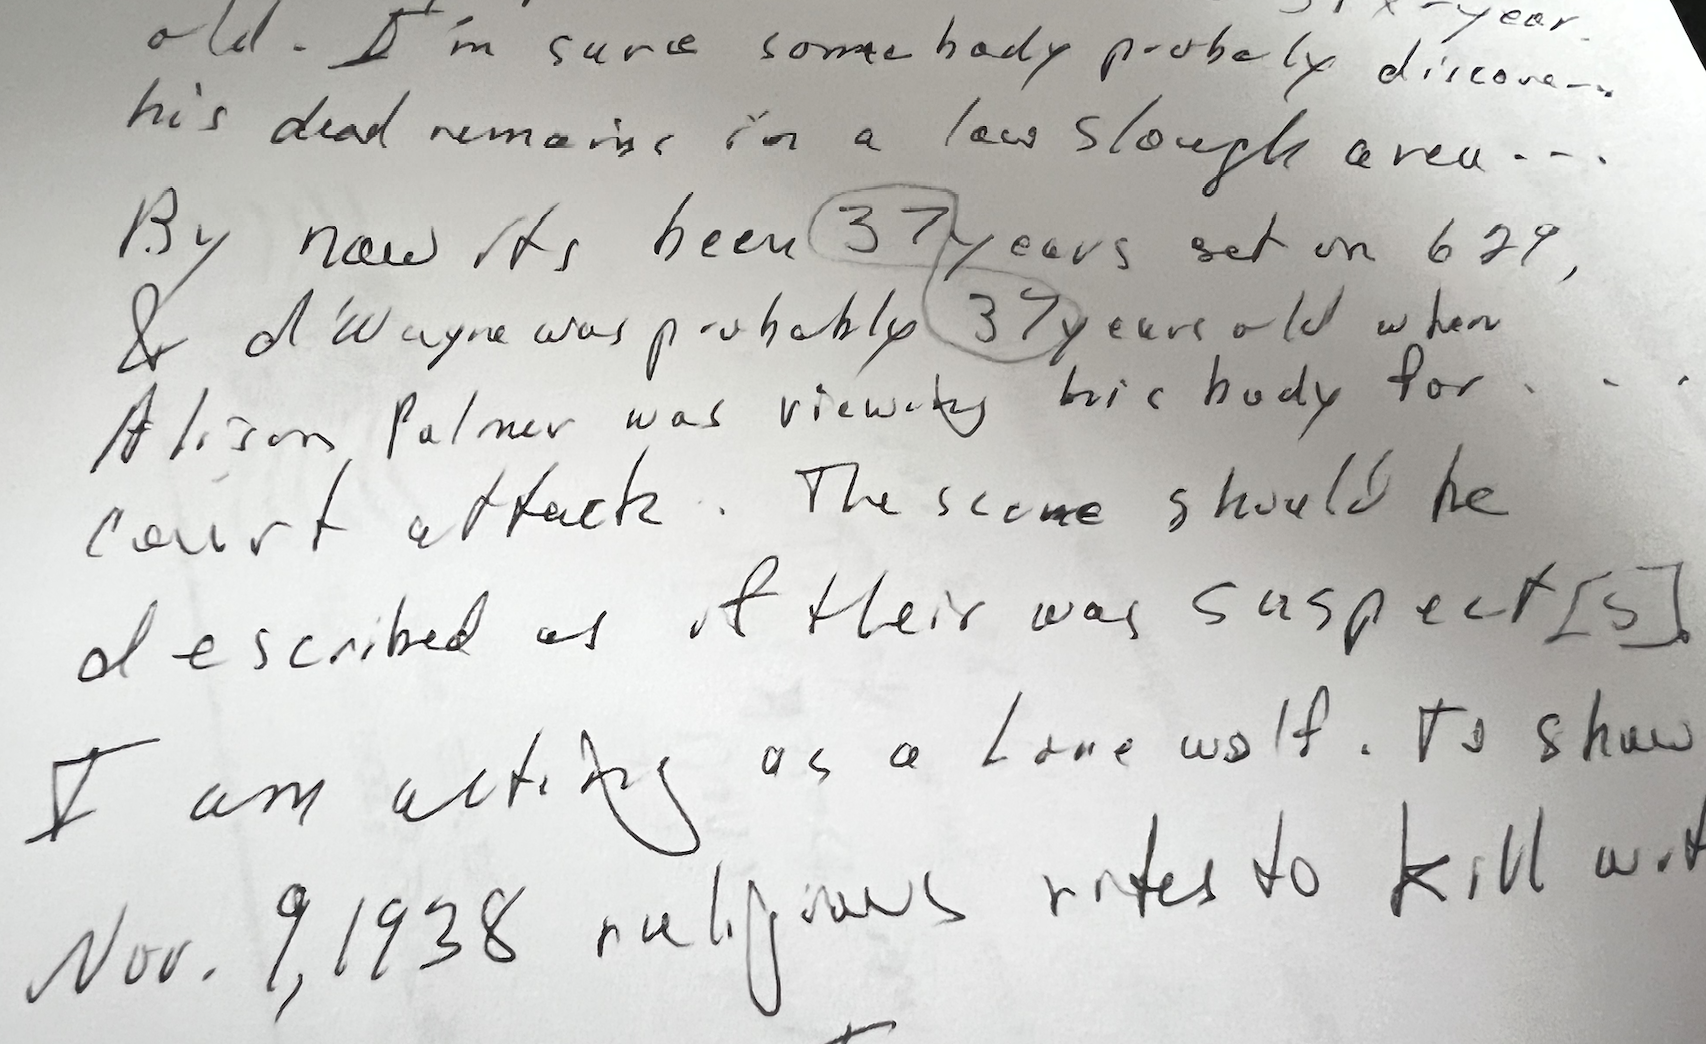 six-year
old. I'm sure somebody probely discove
his dead remains in a low slough area...
By now its been 37 years set on 629,
& d'Wayne was probably 37 years old when
Alison Palmer was viewing his body for...
court attack. The scene should be
described as if their was suspect[s].
I am acting as a Lone wolf. To show
Nov. 9, 1938 religious rites to kill wit